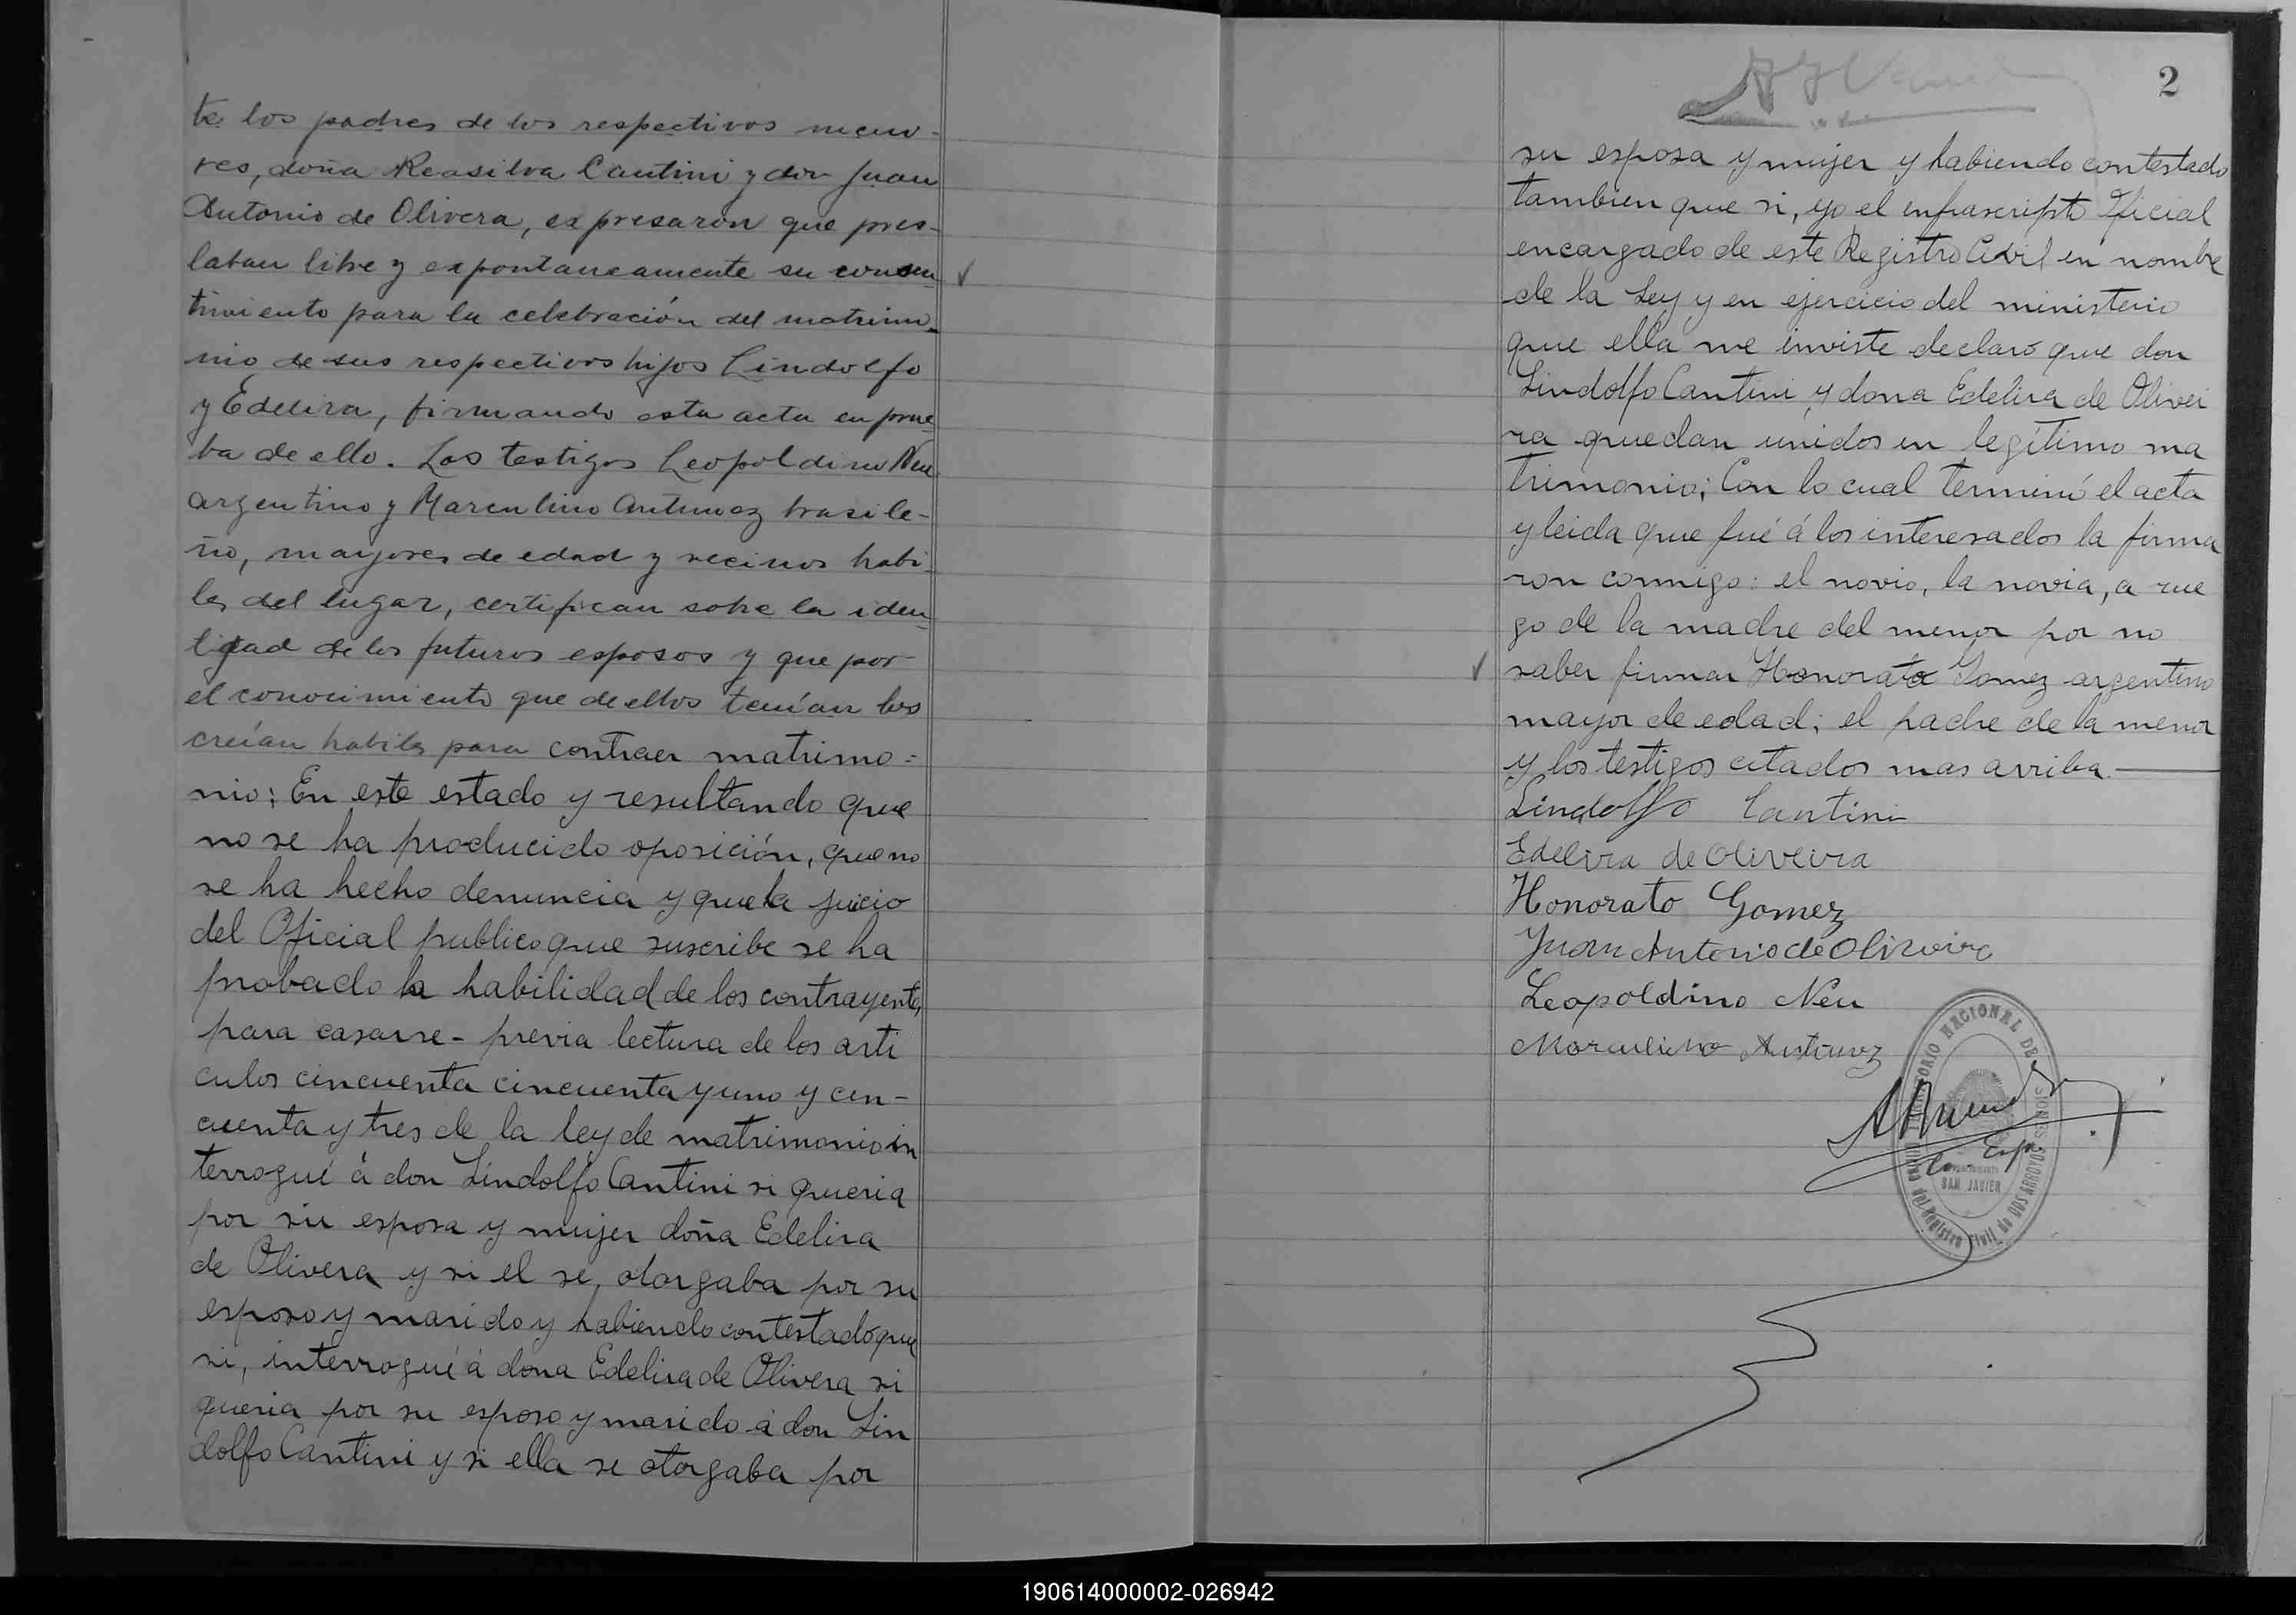 te los padres de los respectivos meno-
res, doña Reasilva Cantini y don Juan
Antonio de Olivera, expresaron que pres-
taban libre y expontaneamente su consen
timiento para la celebración del matrimo-
nio de sus respectivos hijos Lindolfo
y Edelira, firmando esta acta en prue
ba de ello. Los testigos Leopoldino Neu
argentino y Marculino Antunez brasile-
ño, mayores de edad y vecinos habi-
les del lugar, certifican sobre la iden
tidad de los futuros esposos y que por
el conocimiento que de ellos tenían los
creían habiles para contraer matrimo=
nio: En este estado y resultando que
no se ha producido oposición, que no
se ha hecho denuncia y que a juicio
del Oficial publico que suscribe se ha
probado la habilidad de los contrayentes
para casarse - previa lectura de los arti
culos cincuenta cincuenta y uno y cin-
cuenta y tres de la ley de matrimonio in
terrogué á don Lindolfo Cantini si queria
por su esposa y mujer doña Edelira
de Olivera y si el se otorgaba por su
esposo y marido y habiendo contestado que
si, interrogué á dona Edelira de Olivera si
queria por su esposo y marido á don Lin
dolfo Cantini y si ella se otorgaba por
2
su esposa y mujer y habiendo contestado
tambien que si, yo el infrascripto Oficial
encargado de este Registro Civil en nombre
de la Ley y en ejercicio del ministerio
que ella me inviste declaro que don
Lindolfo Cantini y dona Edelira de Olivei
ra quedan unidos en legítimo ma
trimonio; Con lo cual terminó el acta
y leida que fué á los interesados la firma
ron conmigo: el novio, la novia, a rue
go de la madre del menor por no
saber firmar Honorato Gomez argentino
mayor de edad; el padre de la menor
y los testigos citados mas arriba.
Lindolfo Cantini
Edelira de Oliveira
Honorato Gomez
Juan Antonio de Oliveira
Leopoldino Neu
Marculino Antunez
TORIO NACIONAL DE MISIONES
SAN JAVIER
del Registro Civil de DOS ARROYOS
190614000002-026942